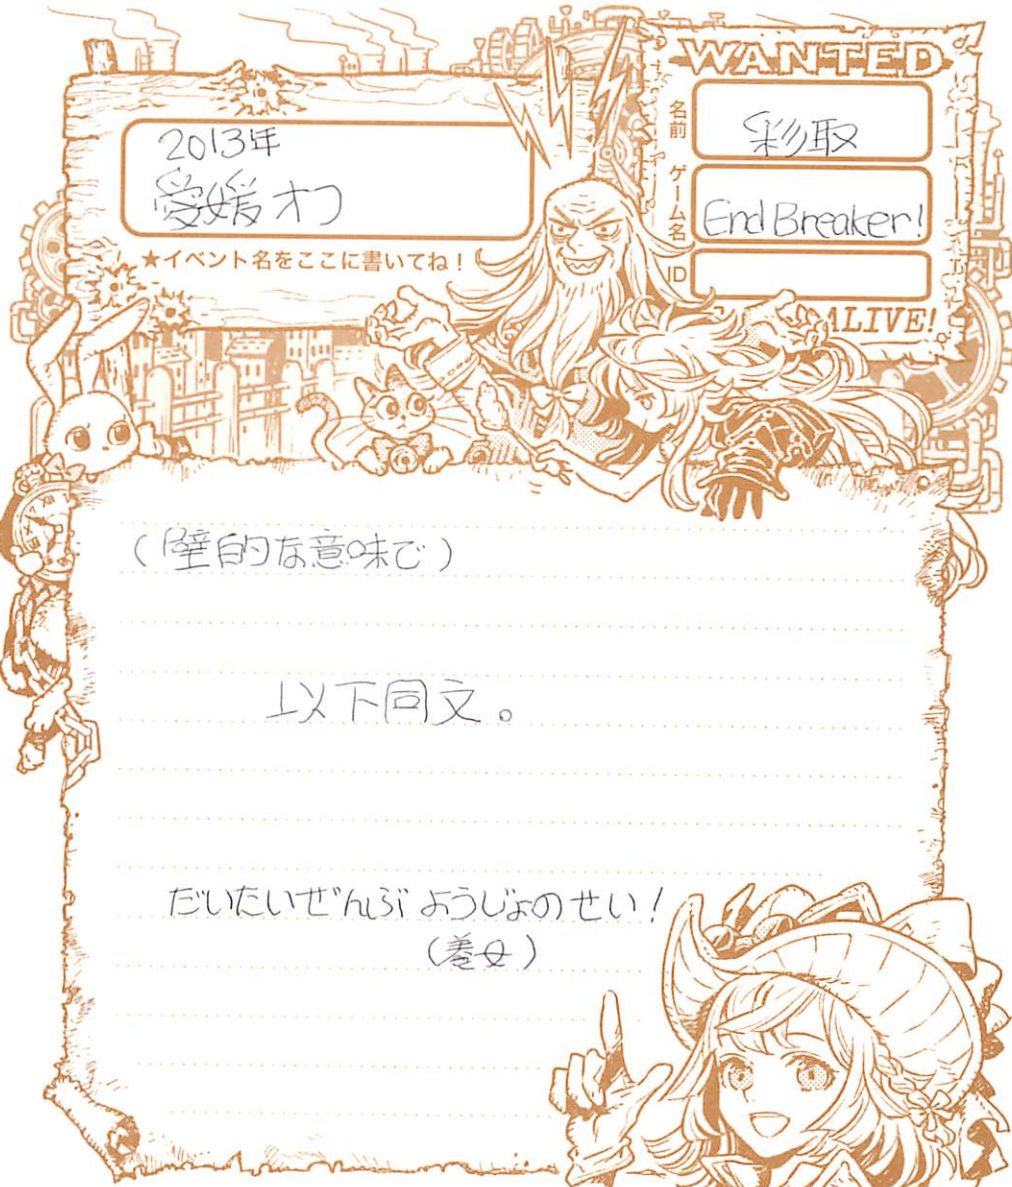 2013年
愛媛オフ
★イベント名をここに書いてね！
WANTED
名前
彩取
ゲーム名
End Breaker!
ID
ALIVE!
(壁的な意味で)
以下同文。
だいたいぜんぶ ようじょのせい！
(養女)